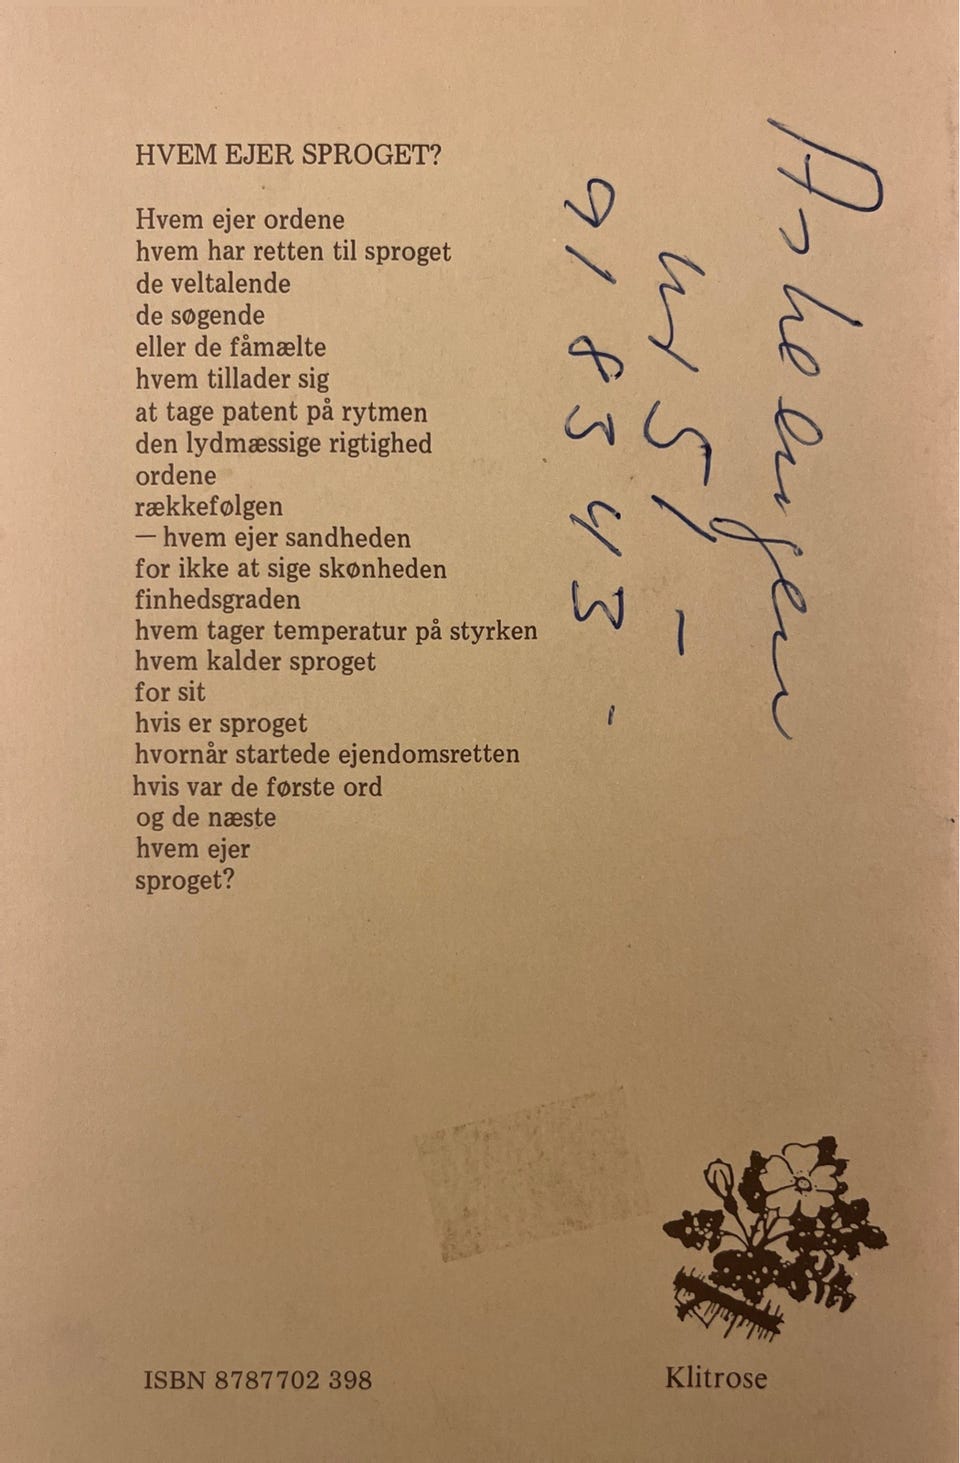 HVEM EJER SPROGET?
Hvem ejer ordene
hvem har retten til sproget
de veltalende
de søgende
eller de fåmælte
hvem tillader sig
at tage patent på rytmen
den lydmæssige rigtighed
ordene
rækkefølgen
— hvem ejer sandheden
for ikke at sige skønheden
finhedsgraden
hvem tager temperatur på styrken
hvem kalder sproget
for sit
hvis er sproget
hvornår startede ejendomsretten
hvis var de første ord
og de næste
hvem ejer
sproget?
918543
ISBN 8787702 398
Klitrose